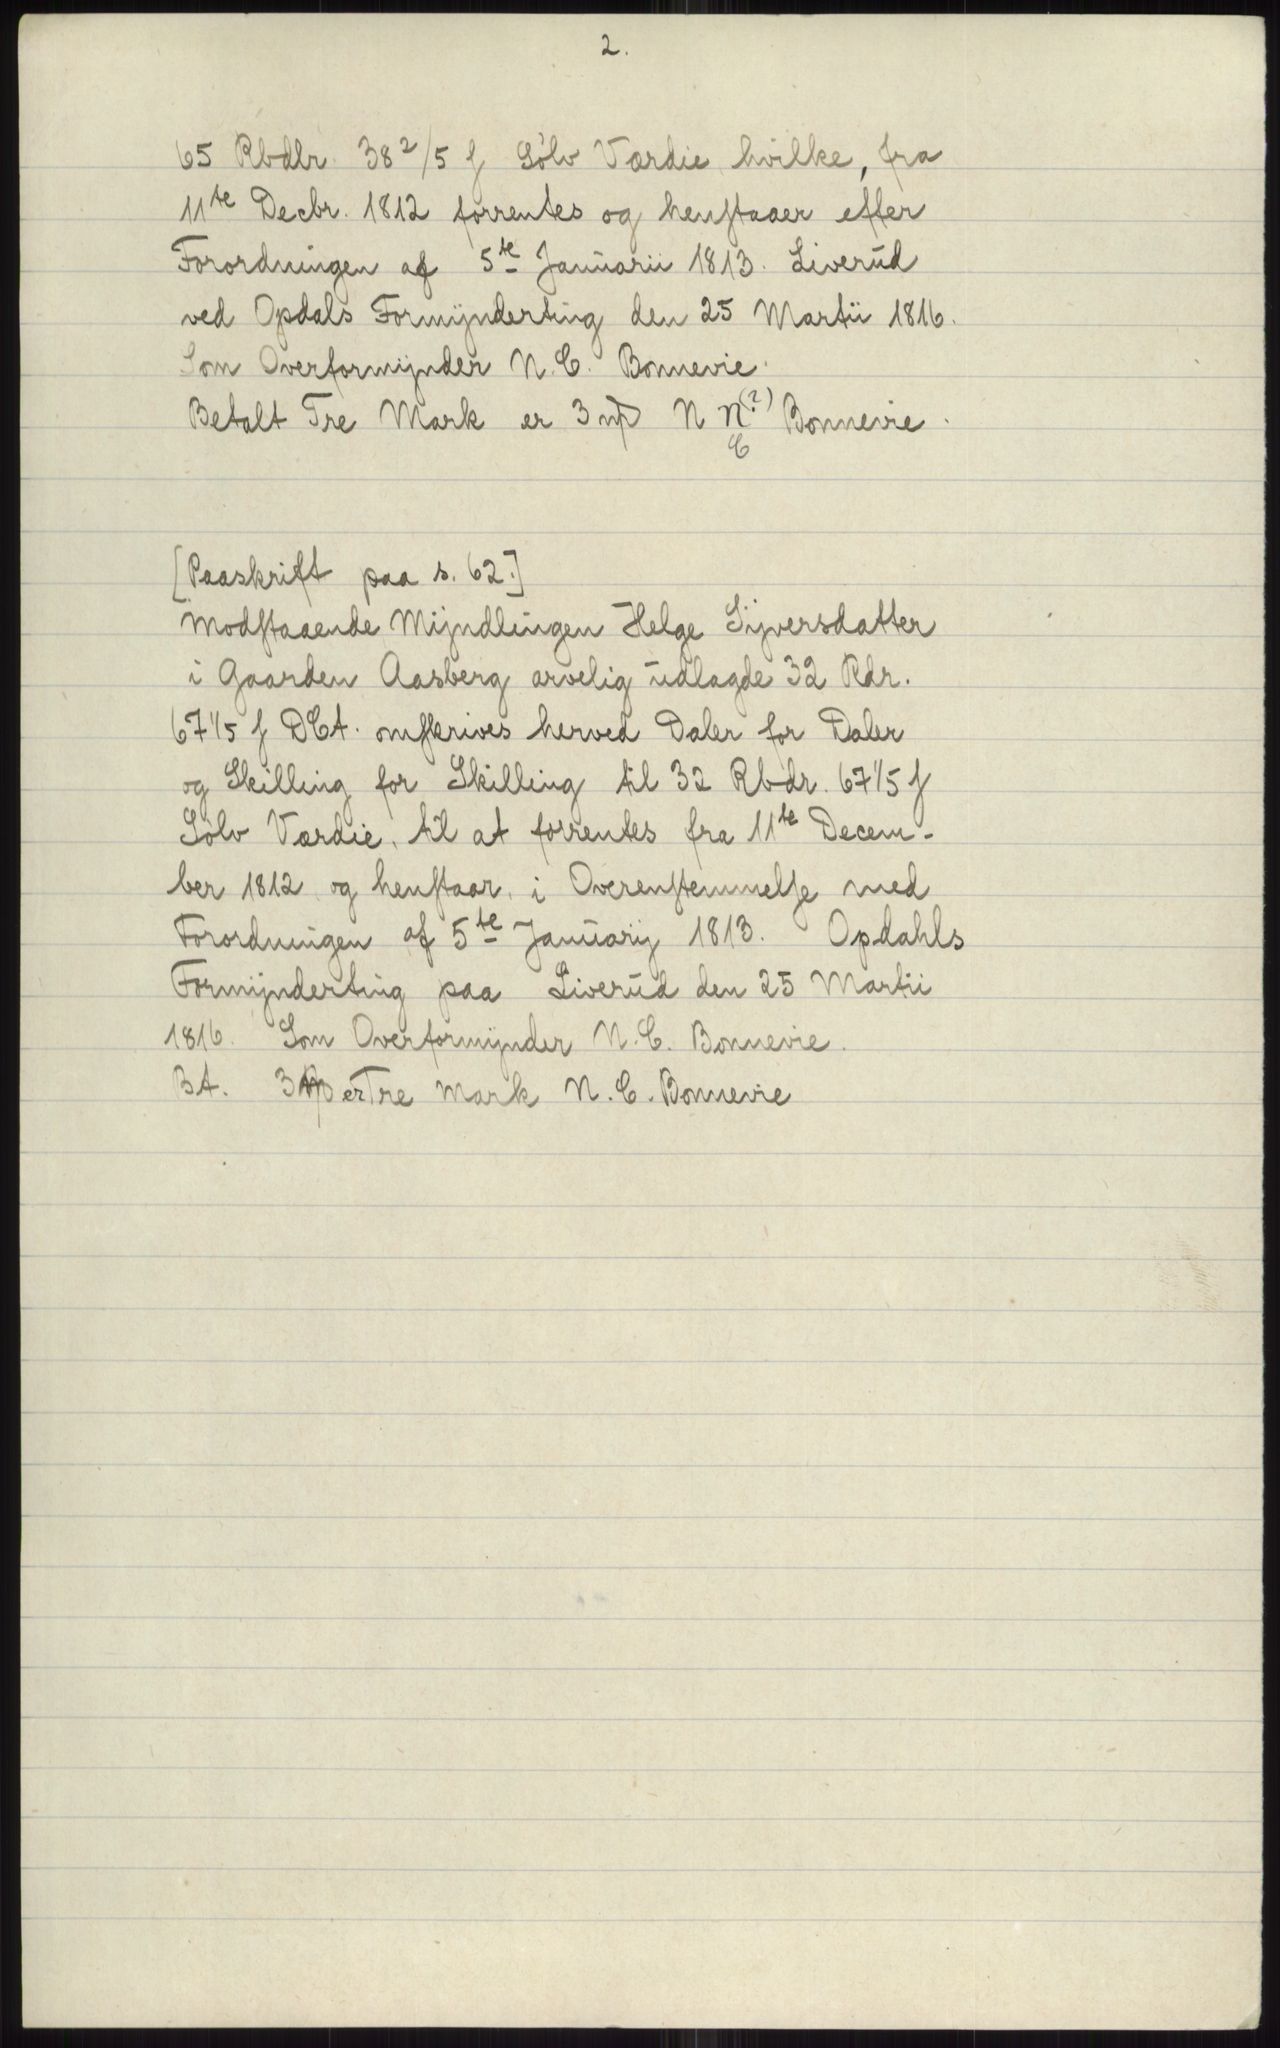 2.
65 Rbdlr. 38 2/5 ſ Sölv Værdie hvilke, fra
11te Decbr. 1812 forrentes og henſtaaer efter
Forordningen af 5te Januarii 1813. Liverud
ved Opdals Formÿnderting den 25 Martii 1816.
Som Overformÿnder N. C. Bonnevie.
Betalt Tre Mark er 3 mƥ N N(?) Bonnevie.
C
[Paaskrift paa s. 62.]
Modſtaaende Mÿndlingen Helge Sÿversdatter
i Gaarden Aasberg arvelig udlagde 32 Rdr.
67 1/5 ſ DCt. omſkrives herved Daler for Daler
og Skilling for Skilling til 32 Rbdr. 67 1/5 ſ
Sölv Værdie, til at forrentes fra 11te Decem-
ber 1812 og henſtaar, i Overenſtemmelſe med
Forordningen af 5te Januarÿ 1813. Opdahls
Formÿnderting paa Liverud den 25 Martii
1816. Som Overformÿnder N. C. Bonnevie.
Bt. 3 mƥ er Tre Mark N. C. Bonnevie